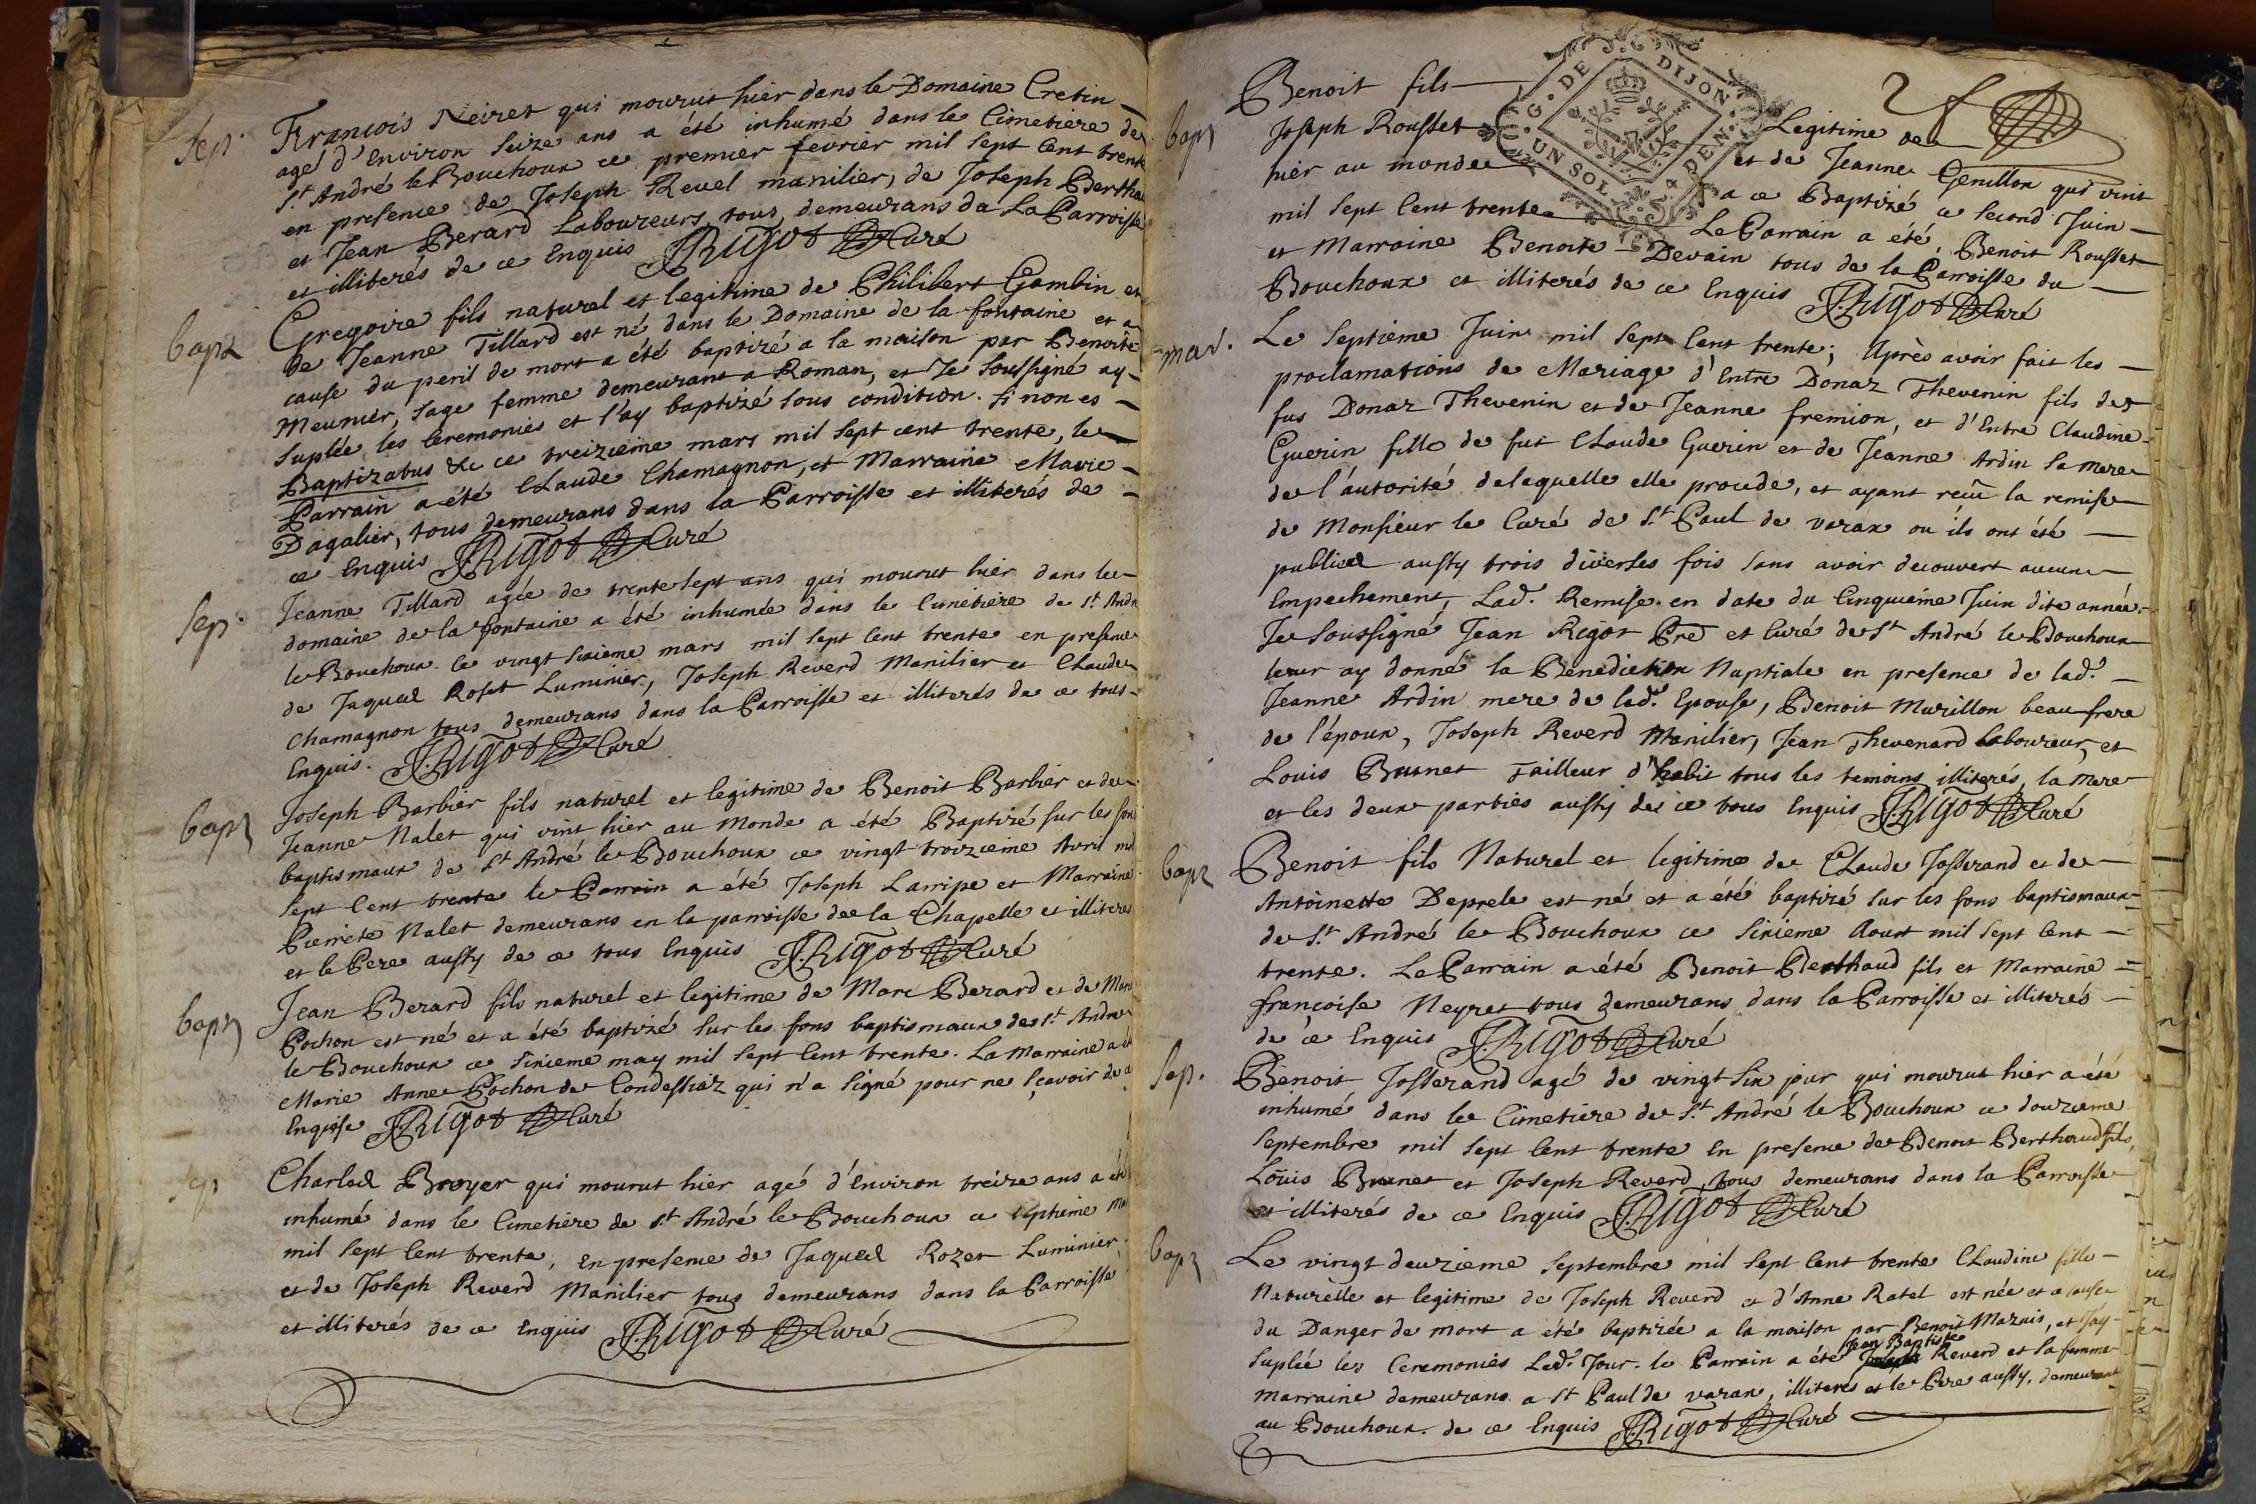 Sep.
François Neiret qui mourut hier dans le Domaine Cretin
agé d'Environ Seize ans a été inhumé dans le Cimetiere de
St. André le Bouchoux ce premier fevrier mil sept Cent trente
en presence de Joseph Revel manilier, de Joseph Bertha
et Jean Berard Laboureurs tous demeurans da La Parroisse
et illiterés de ce Enquis JRigot Curé
bapt
Gregoire fils naturel et legitime de Philibert Gambin et
de Jeanne Tillard est né dans le Domaine de la fontaine et a
cause du peril de mort a été baptizé a la maison par Benoite
Meunier, sage femme demeurant a Roman, et Je Soussigné ay
suplée les Ceremonies et l'ay baptizé sous condition. Si non es
Baptizatus &c ce treizieme mars mil sept cent trente, le
Parrain a été Claude Chamagnon, et Marraine Marie
Dagalier, tous demeurans dans la Parroisse et illiterés de
ce Enquis JRigot Curé
Sep.
Jeanne Tillard agée de trente sept ans qui mourut hier dans le
domaine de la fontaine a été inhumée dans le Cimetiere de St. Andr
le Bouchoux ce vingt sixieme mars mil sept Cent trente en presence
de Jaques Roset Luminier, Joseph Reverd Manilier et Claude
Chamagnon tous demeurans dans la Parroisse et illiterés de ce tous
Enquis. JRigot Curé
bapt
Joseph Barbier fils naturel et legitime de Benoit Barbier et de
Jeanne Nalet qui vint hier au Monde a été Baptizé sur les fon
baptismaux de St. André le Bouchoux ce vingt troizieme Avril mil
sept Cent trente le Parrain a été Joseph Larripe et Marraine
Pierrete Nalet demeurans en la parroisse de la Chapelle et illiteres
et le Pere aussy de ce tous Enquis JRigot Curé
bapt
Jean Berard fils naturel et legitime de Marc Berard et de Mar
Pochon est né et a été baptizé sur les fons baptismaux de St. André
le Bouchoux ce sixieme may mil sept Cent trente. La Marraine a é
Marie Anne Pochon de Condessiaz qui n'a signé pour ne sçavoir de c
Enquise JRigot Curé
sep
Charles Broyer qui mourut hier agé d'Environ treize ans a été
inhumé dans le Cimetiere de St. André le Bouchoux ce septieme Ma
mil sept Cent trente, en presence de Jaques Rozet Luminier,
et de Joseph Reverd Manilier tous demeurans dans la Parroisse
et illiterés de ce Enquis JRigot Curé
G. DE DIJON.
UN SOL 4 DEN.
2
bapt
Benoit fils Legitime de
Joseph Rousset et de Jeanne Genillon qui vint
hier au monde a ce Baptizé ce second Juin
mil sept Cent trente Le Parrain a été, Benoit Rousset
et Marraine Benoite Devain tous de la Parroisse du
Bouchoux et illiterés de ce Enquis JRigot Curé
mar.
Le septieme Juin mil sept Cent trente; Après avoir fait les
proclamations de Mariage d'Entre Donaz Thevenin fils de
fus Donaz Thevenin et de Jeanne fremion, et d'Entre Claudine
Guerin fille de fut Claude Guerin et de Jeanne Ardin sa mere
de l'autorité delaquelle elle procede, et ayant recû la remise
de Monsieur le Curé de St. Paul de varax ou ils ont été
publiés aussy trois diverses fois sans avoir decouvert aucun
Empechement, Lad. Remise en date du Cinquieme Juin dite année.
Je Soussigné Jean Rigot Pre et Curé de St André le Bouchoux
leur ay donné la Benediction Nuptiale en presence de lad.
Jeanne Ardin mere de lad. Epouse, Benoit Murillon beau frere
de l'époux, Joseph Reverd Manilier, Jean Thevenard laboureur, et
Louis Brunet Tailleur d'habit tous les temoins illiterés, la Mere
et les deux parties aussy de ce tous Enquis JRigot Curé
bapt
Benoit fils Naturel et legitime de Claude Josserand et de
Antoinette Deprele est né et a été baptizé sur les fons baptismaux
de St. André le Bouchoux ce sixieme Aoust mil sept Cent
trente. Le Parrain a été Benoit Berthaud fils et Marraine
françoise Neyret tous demeurans dans la Parroisse et illiterés
de ce Enquis JRigot Curé
Sep.
Benoit Josserand agé de vingt six jour qui mourut hier a été
inhumé dans le Cimetiere de St. André le Bouchoux ce douzieme
septembre mil sept Cent trente En presence de Benoit Berthaud fils,
Louis Brunet et Joseph Reverd, tous demeurans dans la Parroisse
et illiterés de ce Enquis JRigot Curé
bapt
Le vingt deuzieme septembre mil sept Cent trente Claudine fille
Naturelle et legitime de Joseph Reverd et d'Anne Ratel est née et a cause
du Danger de mort a été baptizée a la maison par Benoit Mazuis, et J'ay
suplée les Ceremonies Led. Jour. le Parrain a été Jean Baptiste Reverd et sa femme
marraine demeurans a St Paul de varax, illiterés et le Pere aussy, demeurant
au Bouchoux. de ce Enquis JRigot Curé